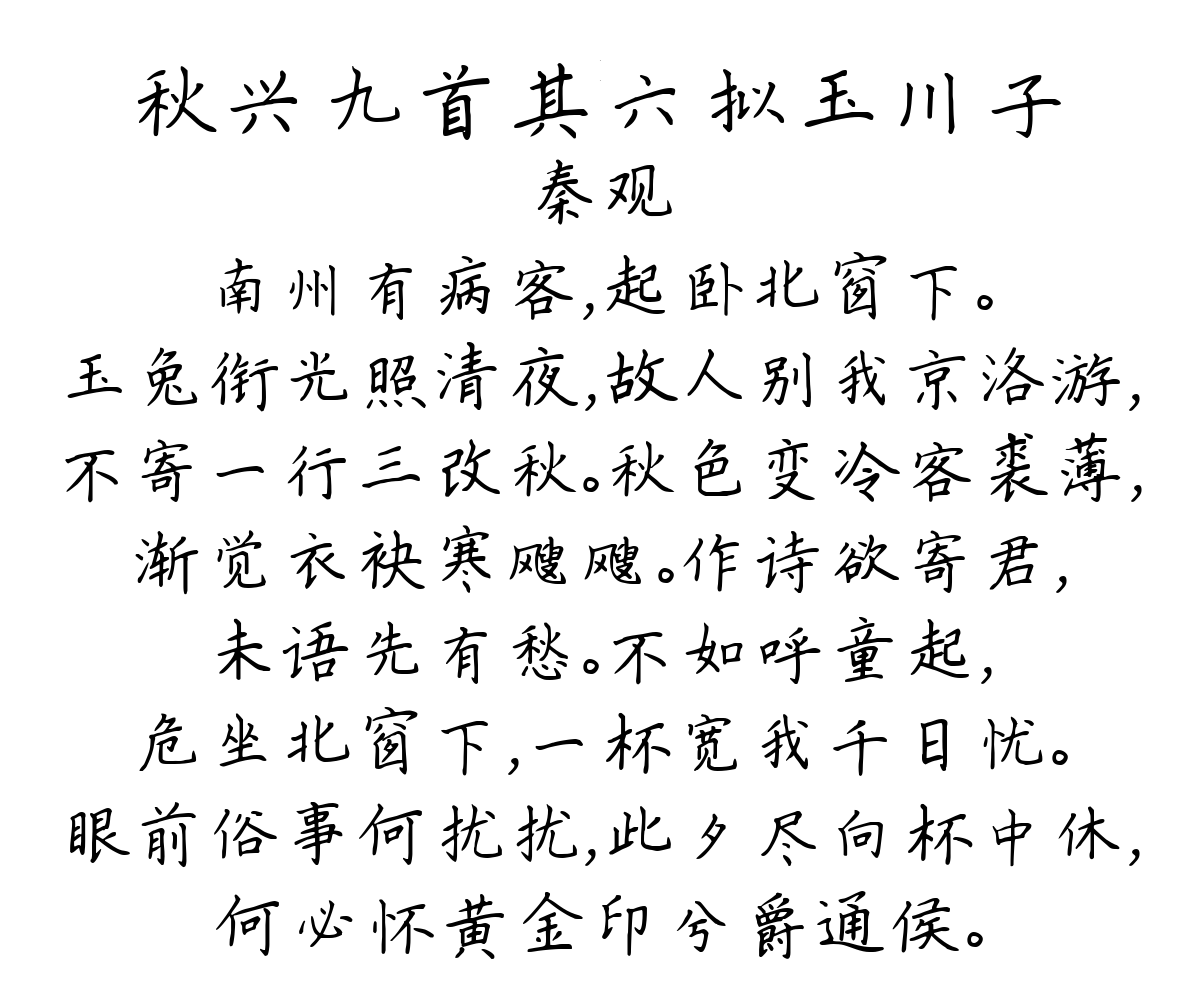 秋兴九首其六拟玉川子
秦观
南州有病客,起卧北窗下。
玉兔衔光照清夜,故人别我京洛游,
不寄一行三改秋。秋色变冷客裘薄,
渐觉衣袂寒飕飕。作诗欲寄君,
未语先有愁。不如呼童起,
危坐北窗下,一杯宽我千日忧。
眼前俗事何扰扰,此夕尽向杯中休,
何必怀黄金印兮爵通侯。